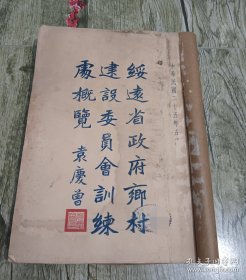 中華民國二十五年五
綏遠省政府鄉村
建設委員會訓練
處概覽
袁慶曾